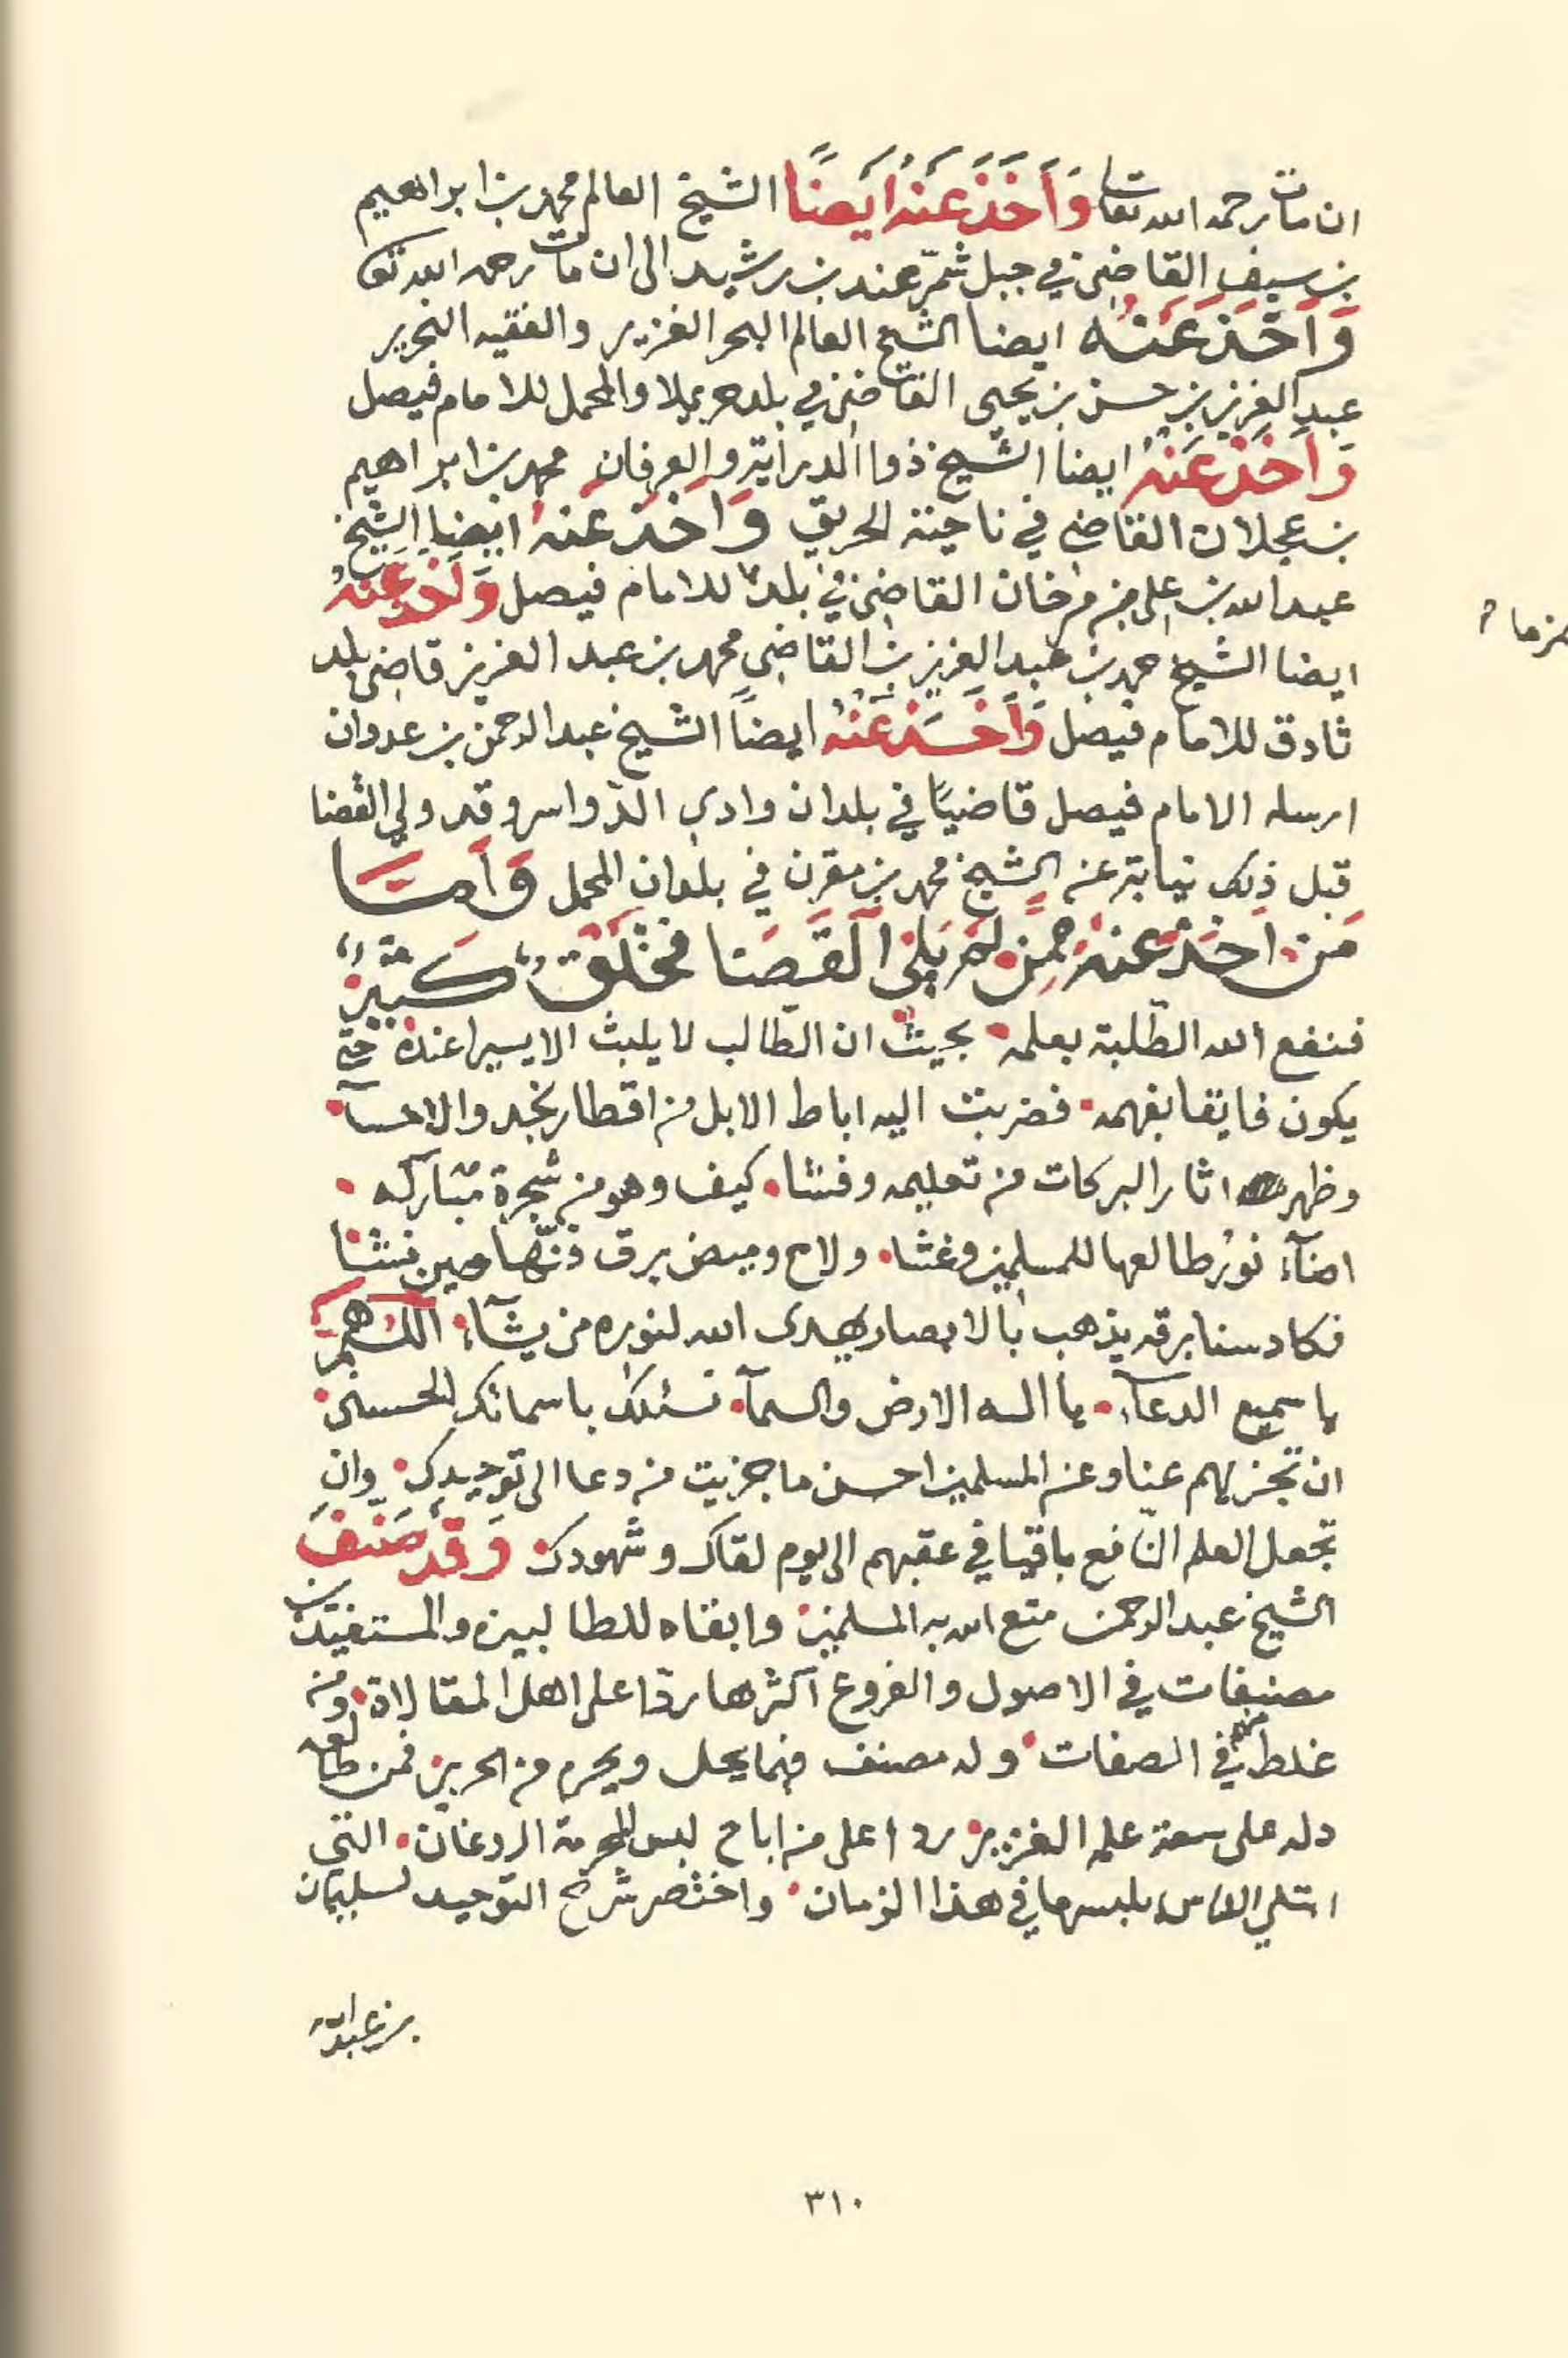 ان مات رحمه الله تعا وَأَخَذَ عَنْهُ أَيْضًا الشيخ العالم محمد بن ابراهيم
بن سيف القاضي في جبل شمّر عند بن رشيد الى ان مات رحمه الله تعا
وَأَخَذَ عَنْهُ ايضا الشيخ العالم البحر الغزير والفقيه النحرير
عبد العزيز بن حسن بن يحيى القاضي في بلد حريملا والمحمل للامام فيصل
وَأَخَذَ عَنْهُ ايضا الشيخ ذوا الدراية والعرفان محمد بن ابراهيم
بن عجلان القاضي في ناحية الحريق وَأَخَذَ عَنْهُ ايضا الشيخ
عبد الله بن علي بن مرخان القاضي في بلد للامام فيصل وَأَخَذَ عَنْهُ
ضرما
ايضا الشيخ حمد بن عبد العزيز بن القاضي محمد بن عبد العزيز قاضي بلد
ثادق للامام فيصل وَأَخَذَ عَنْهُ ايضاً الشيخ عبد الرحمن بن عدوان
ارسله الامام فيصل قاضيًا في بلدان وادي الدّواسر وقد ولي القضا
قبل ذلك نيابة عن الشيخ محمد بن مقرن في بلدان المحمل وَأَمَّا
مَنْ أَخَذَ عَنْهُ مِمَّن لَمْ يَلِي الْقَضَا فَخَلْقٌ كَثِيْرٌ
فنفع الله الطّلبة بعلمه بحيث ان الطّالب لا يلبث الا يسيرا عنده حتى
يكون فايقا بفهمه فضربت اليه اباط الابل من اقطار نجد والاحسآ
وظهر اثار البركات من تعليمه وفشا كيف وهو من شجرة مباركه
اضآء نور طالعها للمسلمين وغشا ولاح وميض برق فنّها حين نشا
فكاد سنا برقه يذهب بالابصار يهدى الله لنوره من يشآء اللهم
يا سميع الدعآء يا اله الارض والسمآء نسئلك باسمائك الحسنى
ان تجزيهم عنا وعن المسلمين احسن ما جزيت من دعا الى توحيدك وان
تجعل العلم النّافع باقيا في عقبهم الى يوم لقاك وشهودك وَقَدْ صَنَّفَ
الشيخ عبد الرحمن متع الله به المسلمين وابقاه للطالبين والمستفيدين
مصنفات في الاصول والفروع اكثرها ردّا على اهل المقالاة ومن
غلط في الصفات وله مصنف فيما يحل ويحرم من الحرير فمن طالعه
دله على سعة علمه الغزير ردا على من اباح لبس المحرمة الردغان التي
ابتلي الناس بلبسها في هذا الزمان واختصر شرح التوحيد لسليمان
بن عبد الله
٣١٠